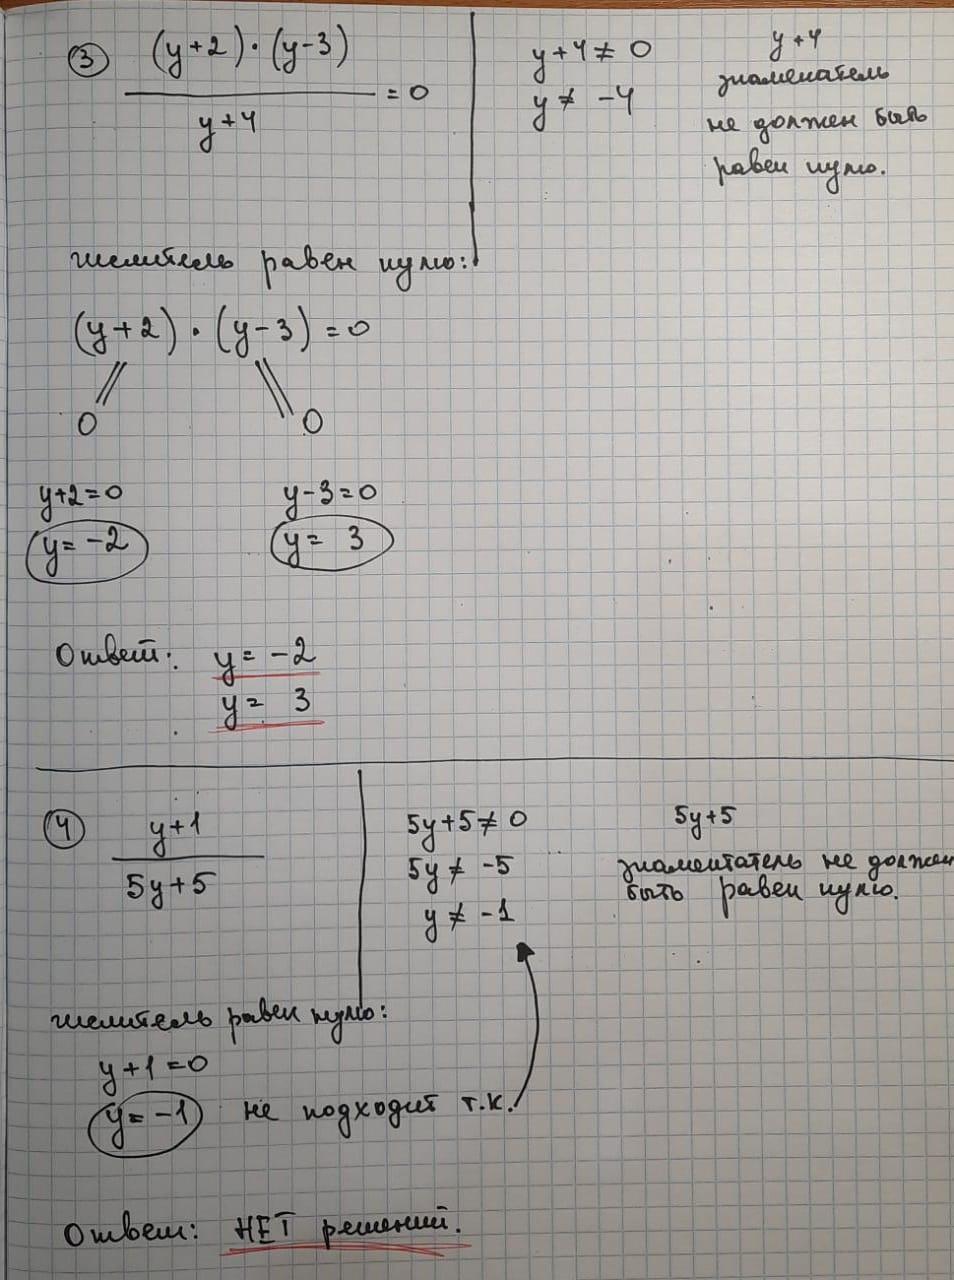 ③ (y+2)·(y-3)
y+4 = 0
y+4 ≠ 0
y ≠ -4
y+4
знаменатель
не должен быть
равен нулю.
числитель равен нулю:
(y+2) · (y-3) = 0
0 0
y+2=0 y-3=0
y= -2 y= 3
Ответ: y= -2
y= 3
④ y+1
5y+5
5y+5 ≠ 0
5y ≠ -5
y ≠ -1
5y+5
знаментатель не должен
быть равен нулю.
числитель равен нулю:
y+1=0
y= -1 не подходит т.к.
Ответ: НЕТ решений.